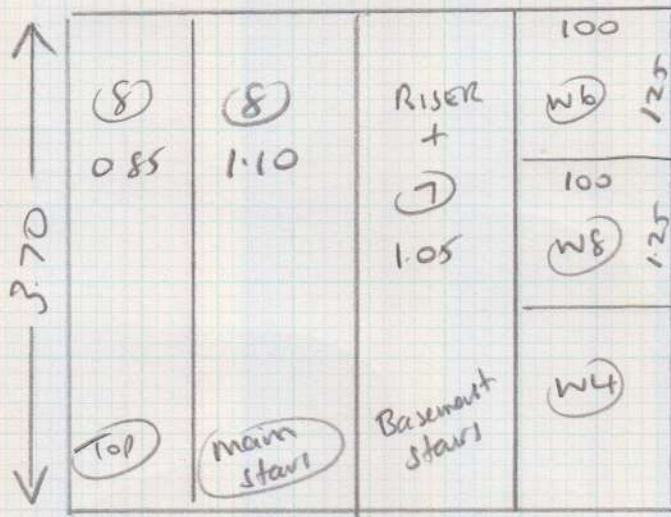 3.70
8
0.85
Top
8
1.10
main
stairs
RISER
+
7
1.05
Basement
stairs
100
W6
1.25
100
W8
1.25
W4